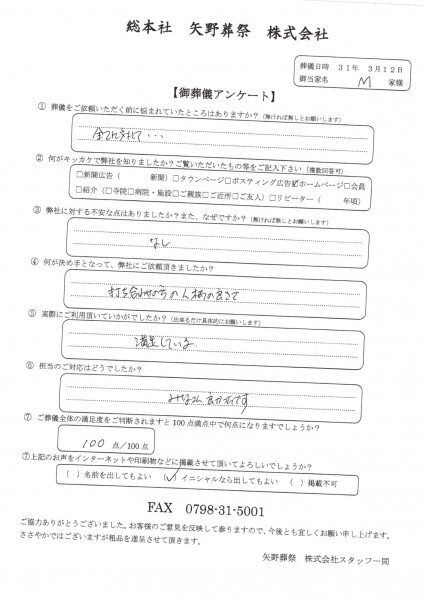 総本社 矢野葬祭 株式会社
葬儀日時 31年 3月12日
御当家名 M 家様
【御葬儀アンケート】
① 葬儀をご依頼いただく前に悩まれていたところはありますか?(無ければ無しとお願いします)
全てにおいて・・・
② 何がキッカケで弊社を知りましたか?ご覧いただいたもの等をご記入下さい(複数回答可)
□新聞広告( 新聞)□タウンページ□ポスティング広告☑ホームページ□会員
□紹介(□寺院□病院・施設□ご親族□ご近所□ご友人)□リピーター( 年頃)
③ 弊社に対する不安な点はありましたか?また、なぜですか?(無ければ無しとお願いします)
なし
④ 何が決め手となって、弊社にご依頼頂きましたか?
打ち合わせの方の人柄の良さで
⑤ 実際にご利用頂いていかがでしたか?(出来るだけ具体的にお願いします)
満足している
⑥ 担当のご対応はどうでしたか?
みなさん良かったです
⑦ ご葬儀全体の満足度をご判断されますと100点満点中で何点になりますでしょうか?
100 点/100点
⑦上記のお声をインターネットや印刷物などに掲載させて頂いてよろしいでしょうか?
( )名前を出してもよい (✓)イニシャルなら出してもよい ( )掲載不可
FAX 0798-31-5001
ご協力ありがとうございました。お客様のご意見を反映して参りますので、今後とも宜しくお願い申し上げます。
ささやかではございますが粗品を進呈させて頂きます。
矢野葬祭 株式会社スタッフ一同